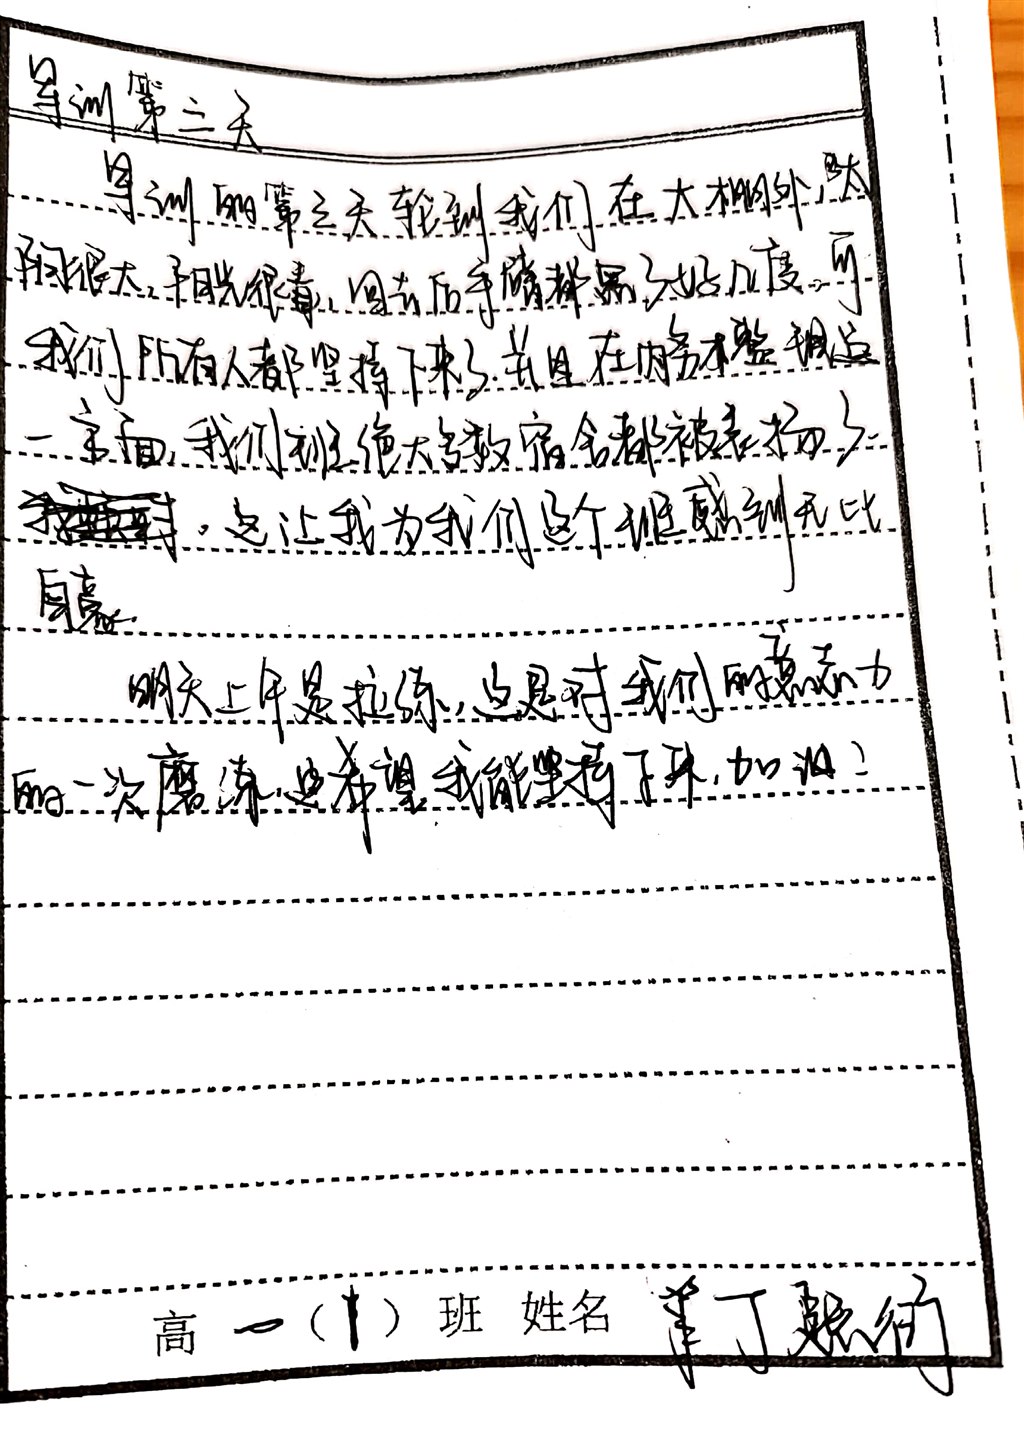 军训第三天
军训的第三天轮到我们在大棚外,太
阳很大,阳光很毒,回去后手臂都黑了好几度,可
我们所有人都坚持下来了.并且在内务整理这
一方面,我们班绝大多数宿舍都被表扬了
,这让我为我们这个班感到无比
自豪.
明天上午是拉练,这是对我们的意志力
的一次磨练,也希望我能坚持下来,加油!
高一(1)班 姓名